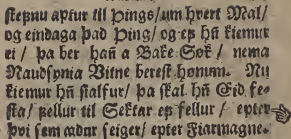 stefnu aptur til Þings/ um hvert Mal/
og eindaga þad Þing/ og ef hañ kiemur
ei / þa ber hañ a Bake Søk / nema
Naudsynia Vitne berest hønum. Nu
kiemur hañ sialfur/ þa skal hñ Eid fe-
sta/ ꝫellur til Sektar ef fellur / epter
þvi sem adur seiger/ epter Fiarmagne.